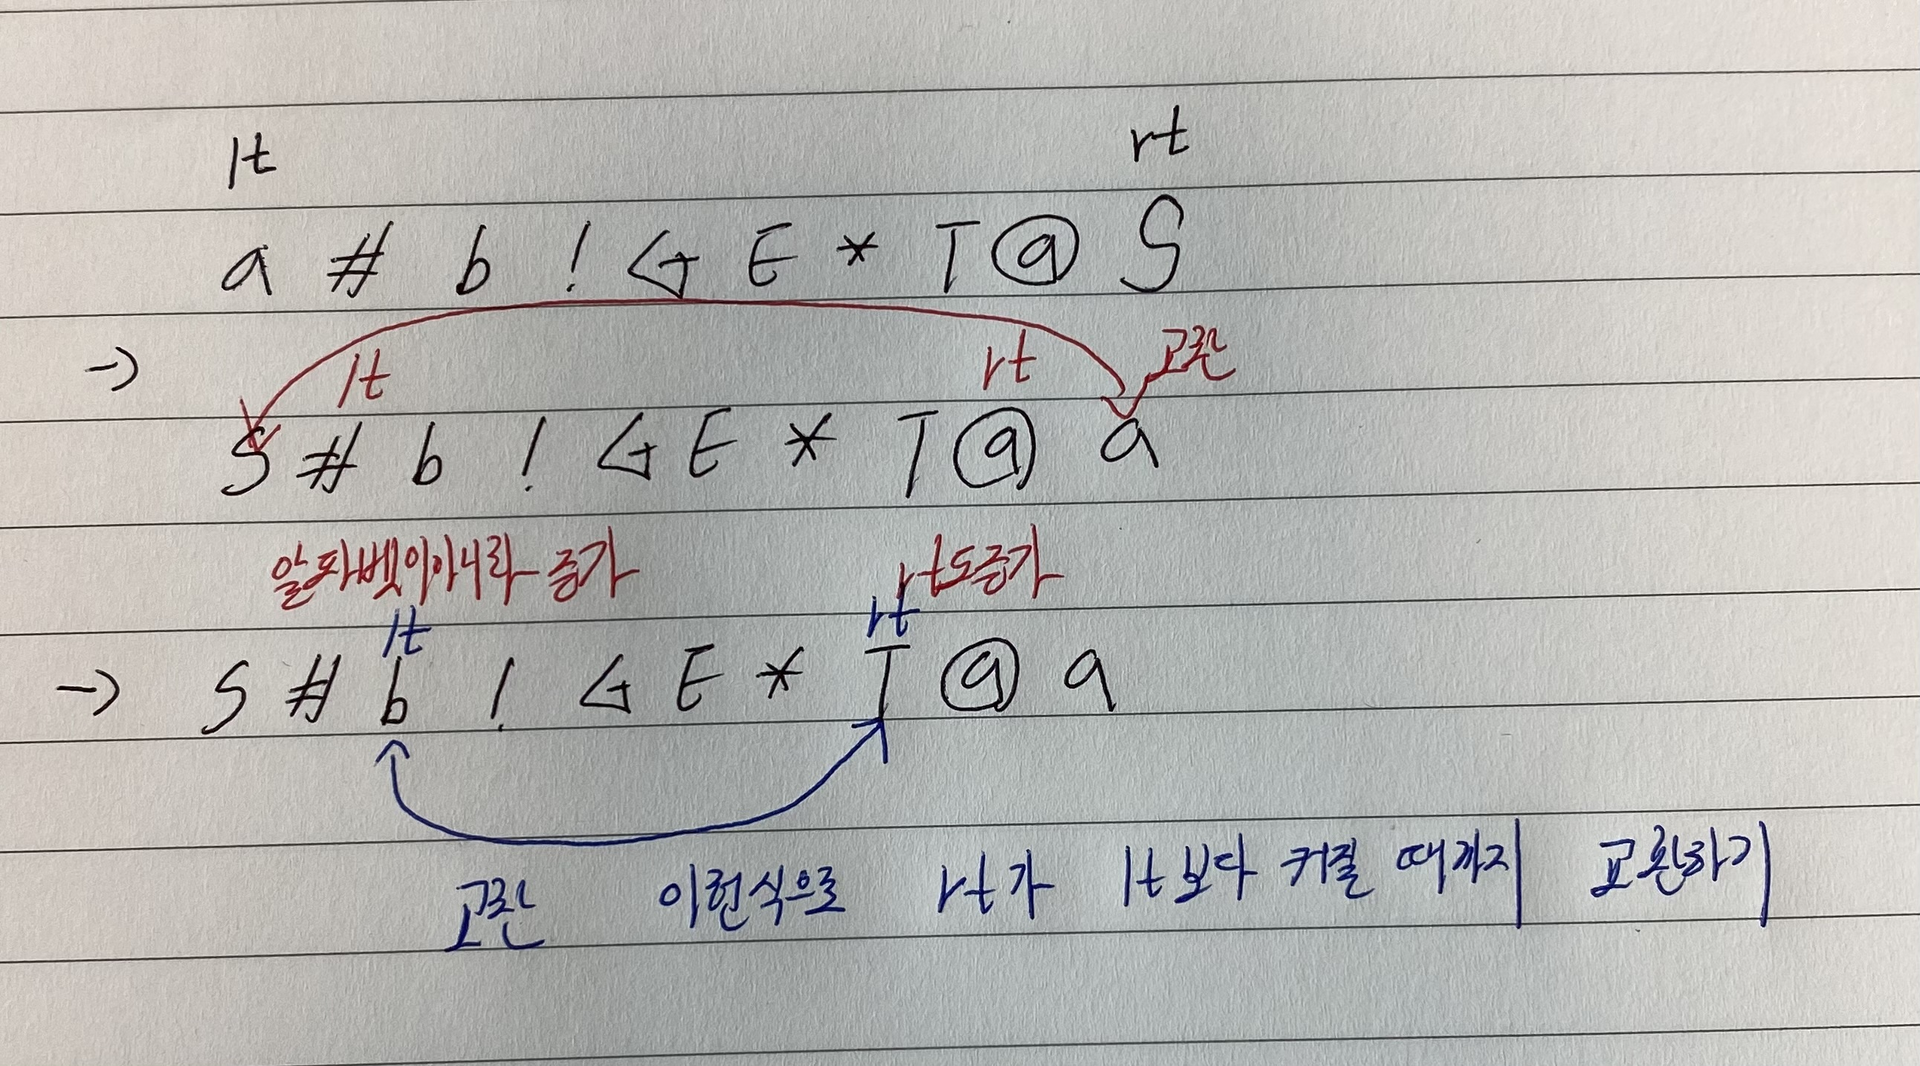 lt rt
a # b ! G E * T @ S
→ lt rt 교환
S # b ! G E * T @ a
알파벳이아니라 증가 rt도증가
lt rt
→ S # b ! G E * T @ a
교환 이런식으로 rt가 lt보다 커질 때까지 교환하기